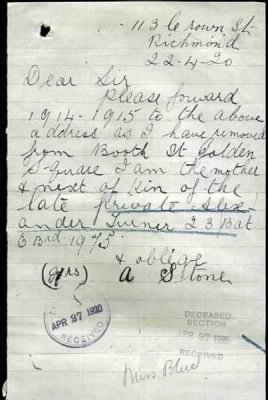 113 Crown St
Richmond
22-4-20
Dear Sir
Please foward
1914-1915 to the above
address as I have removed
from Booth St Golden
Square I am the mother
& next of kin of the
late Private Alex
ander Turner 23 Bat
6 Brd 1975
& oblige
(Mrs) A Stone
APR 27 1920
RECEIVED
DECEASED
SECTION
APR 27 1920
RECEIVED
Miss Blue